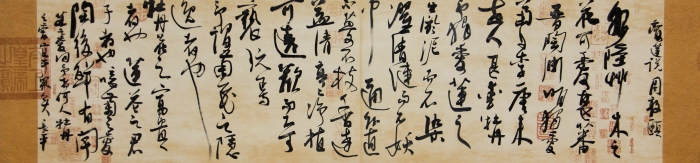 愛蓮說 周敦頤
水陸艸木之
花可愛者甚蕃
晉陶渊明獨愛
菊自李唐來
世人甚愛牡丹
予獨愛蓮之
出淤泥而不染
濯清漣而不妖
中通外直
不蔓不枝香遠
益清亭亭净植
可遠觀而不可
褻玩焉
予謂菊花之隱
逸者也
牡丹花之富貴
者也蓮花之君
子者也噫菊之愛
陶後鮮有聞
蓮之愛同予者何人牡丹
之愛宜乎眾矣